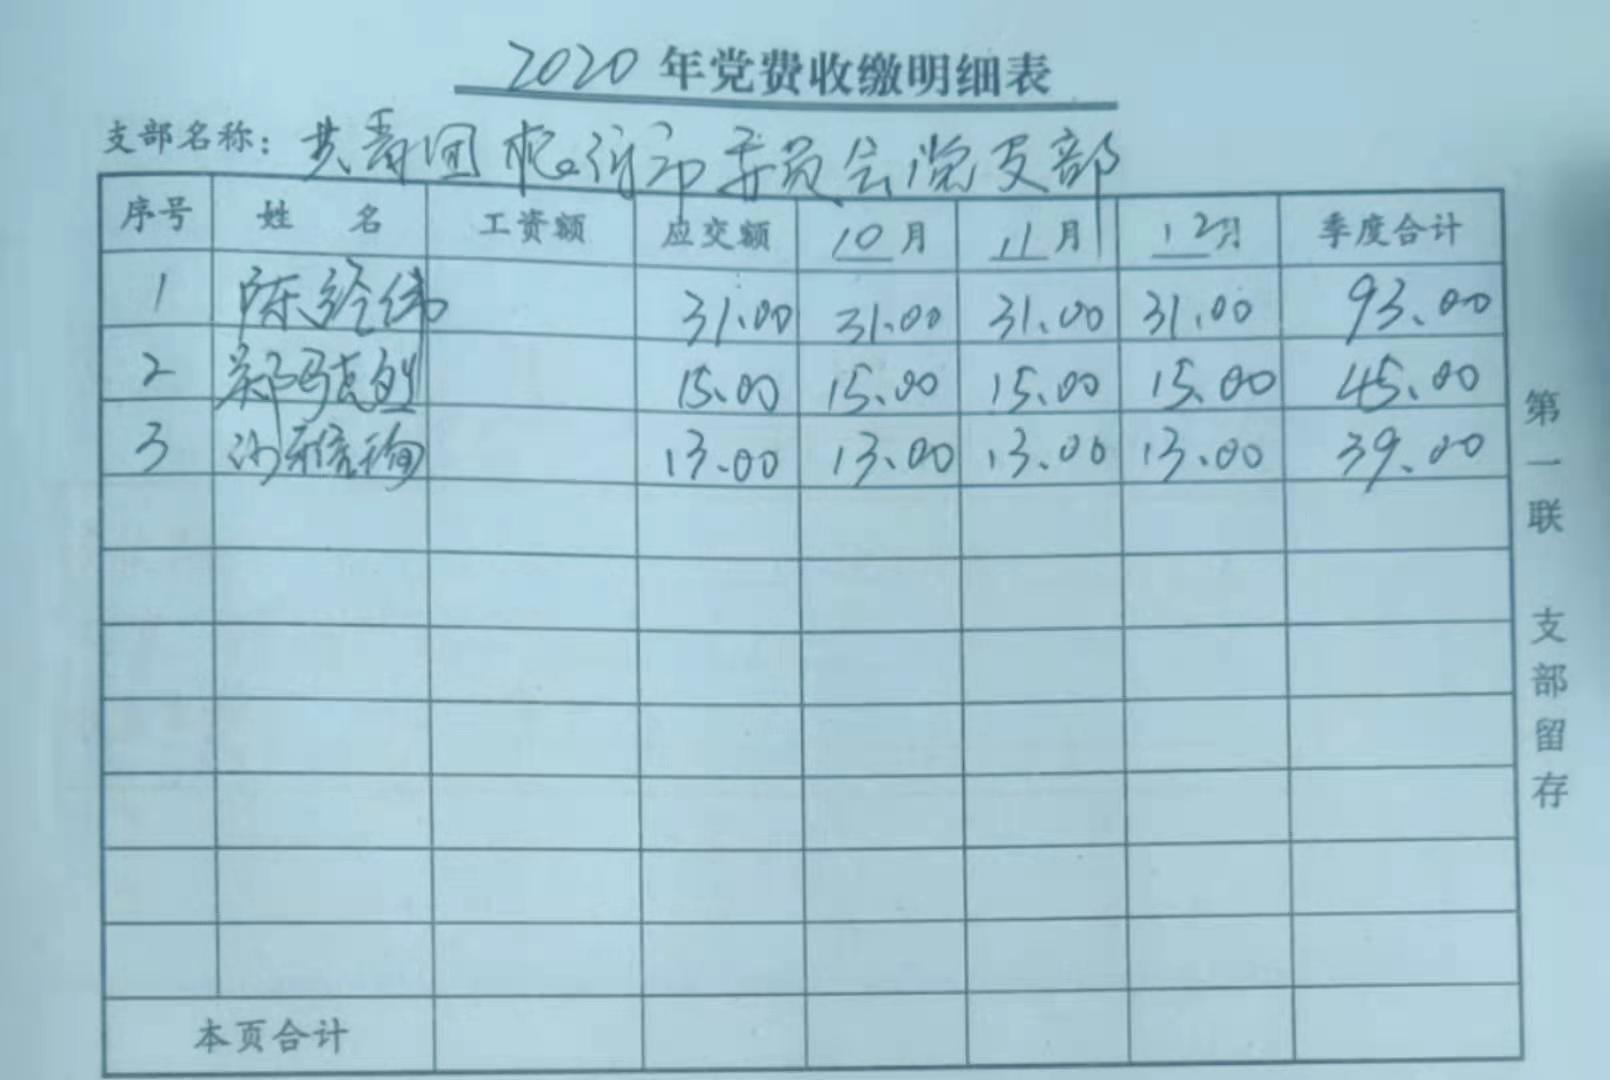 2020年党费收缴明细表
支部名称：共青团临沂市委员会党支部
序号 姓名 工资额 应交额 10月 11月 12月 季度合计
1 陈经纬 31.00 31.00 31.00 31.00 93.00
2 郑克 15.00 15.00 15.00 15.00 45.00
3 13.00 13.00 13.00 13.00 39.00
本页合计
第一联 支部留存